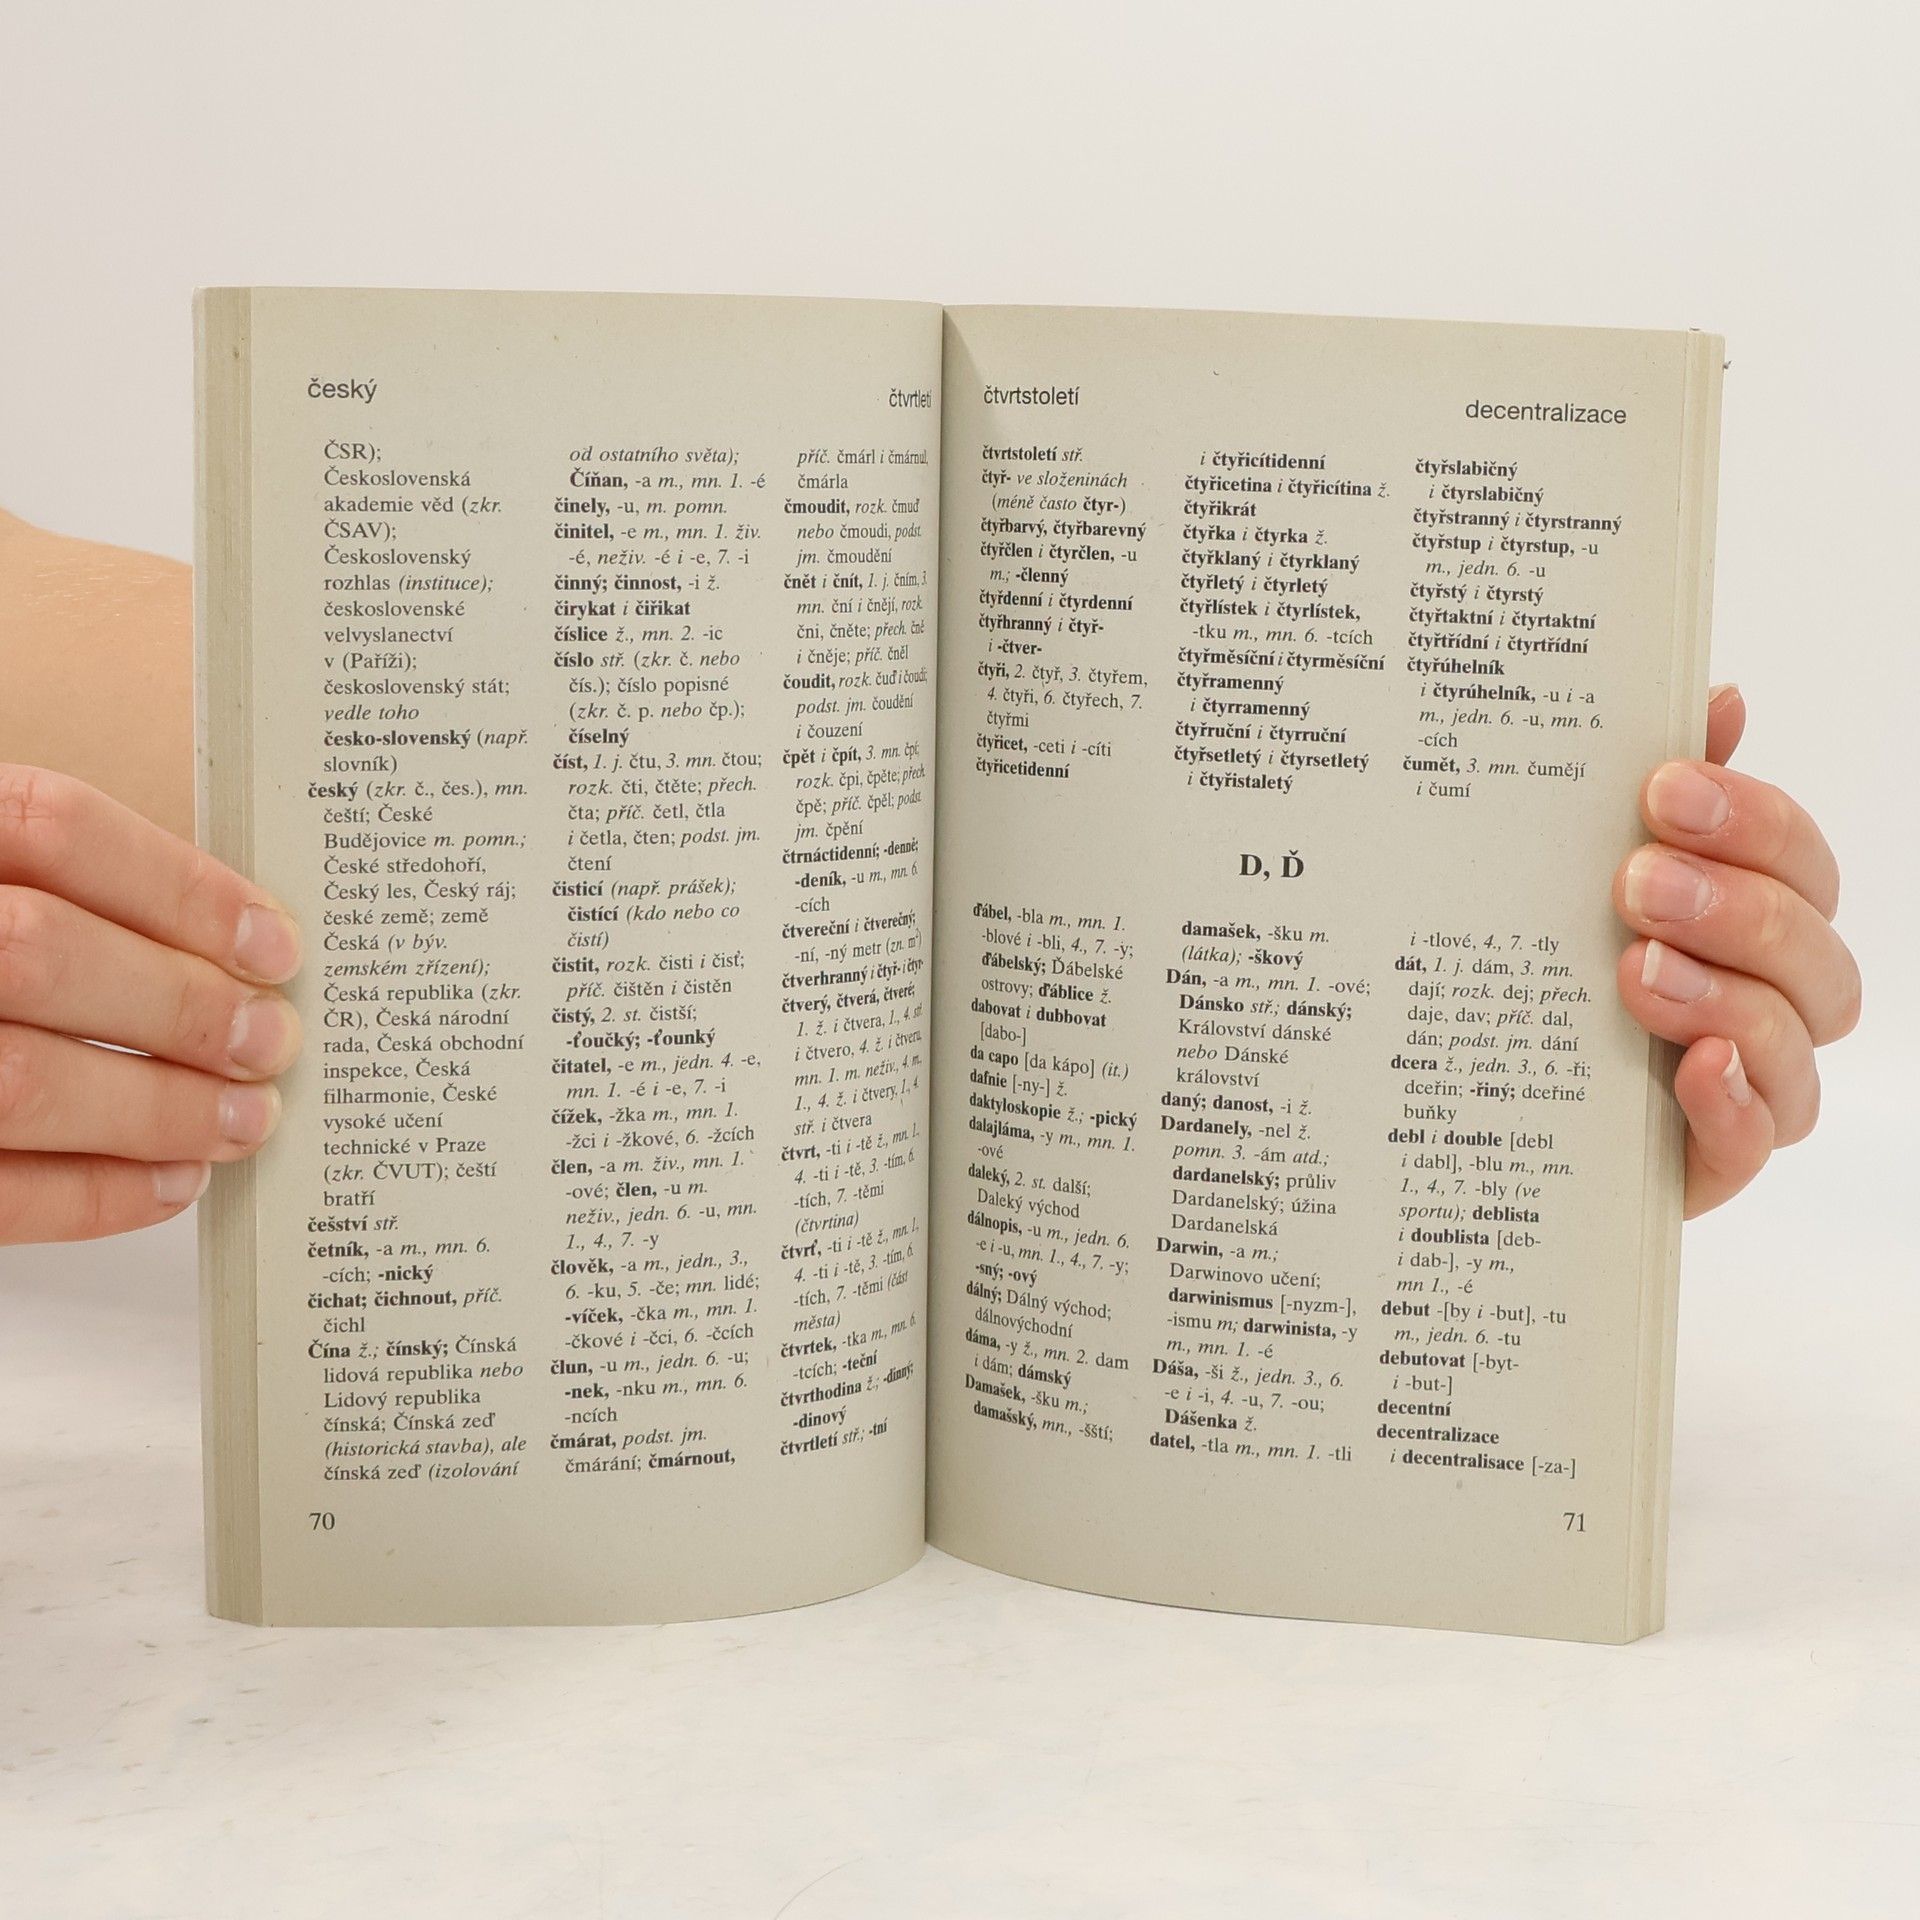 český
čtvrtletí
ČSR);
Československá
akademie věd (zkr.
ČSAV);
Československý
rozhlas (instituce);
československé
velvyslanectví
v (Paříži);
československý stát;
vedle toho
česko-slovenský (např.
slovník)
český (zkr. č., čes.), mn.
čeští; České
Budějovice m. pomn.;
České středohoří,
Český les, Český ráj;
české země; země
Česká (v býv.
zemském zřízení);
Česká republika (zkr.
ČR), Česká národní
rada, Česká obchodní
inspekce, Česká
filharmonie, České
vysoké učení
technické v Praze
(zkr. ČVUT); čeští
bratří
češství stř.
četník, -a m., mn. 6.
-cích; -nický
čichat; čichnout, příč.
čichl
Čína ž.; čínský; Čínská
lidová republika nebo
Lidový republika
čínská; Čínská zeď
(historická stavba), ale
čínská zeď (izolování
od ostatního světa);
Číňan, -a m., mn. 1. -é
činely, -u, m. pomn.
činitel, -e m., mn. 1. živ.
-é, neživ. -é i -e, 7. -i
činný; činnost, -i ž.
čirykat i čiřikat
číslice ž., mn. 2. -ic
číslo stř. (zkr. č. nebo
čís.); číslo popisné
(zkr. č. p. nebo čp.);
číselný
číst, 1. j. čtu, 3. mn. čtou;
rozk. čti, čtěte; přech.
čta; příč. četl, čtla
i četla, čten; podst. jm.
čtení
čisticí (např. prášek);
čistící (kdo nebo co
čistí)
čistit, rozk. čisti i čisť;
příč. čištěn i čistěn
čistý, 2. st. čistší;
-ťoučký; -ťounký
čitatel, -e m., jedn. 4. -e,
mn. 1. -é i -e, 7. -i
čížek, -žka m., mn. 1.
-žci i -žkové, 6. -žcích
člen, -a m. živ., mn. 1.
-ové; člen, -u m.
neživ., jedn. 6. -u, mn.
1., 4., 7. -y
člověk, -a m., jedn., 3.,
6. -ku, 5. -če; mn. lidé;
-víček, -čka m., mn. 1.
-čkové i -čci, 6. -čcích
člun, -u m., jedn. 6. -u;
-nek, -nku m., mn. 6.
-ncích
čmárat, podst. jm.
čmárání; čmárnout,
příč. čmárl i čmárnul,
čmárla
čmoudit, rozk. čmuď
nebo čmoudi, podst.
jm. čmoudění
čnět i čnít, 1. j. čním, 3.
mn. ční i čnějí, rozk.
čni, čněte; přech. čně
i čněje; příč. čněl
čoudit, rozk. čuď i čoudi;
podst. jm. čoudění
i čouzení
čpět i čpít, 3. mn. čpí;
rozk. čpi, čpěte; přech.
čpě; příč. čpěl; podst.
jm. čpění
čtrnáctidenní; -denně;
-deník, -u m., mn. 6.
-cích
čtvereční i čtverečný;
-ní, -ný metr (zn. m²)
čtverhranný i čtyř- i čtyr-
čtverý, čtverá, čtveré;
1. ž. i čtvera, 1., 4. stř.
i čtvero, 4. ž. i čtveru,
mn. 1. m. neživ., 4. m.,
1., 4. ž. i čtvery, 1., 4.
stř. i čtvera
čtvrt, -ti i -tě ž., mn. 1.,
4. -ti i -tě, 3. -tím, 6.
-tích, 7. -těmi
(čtvrtina)
čtvrť, -ti i -tě ž., mn. 1.,
4. -ti i -tě, 3. -tím, 6.
-tích, 7. -těmi (část
města)
čtvrtek, -tka m., mn. 6.
-tcích; -teční
čtvrthodina ž.; -dinný;
-dinový
čtvrtletí stř.; -tní
70
čtvrtstoletí
decentralizace
čtvrtstoletí stř.
čtyř- ve složeninách
(méně často čtyr-)
čtyřbarvý, čtyřbarevný
čtyřčlen i čtyrčlen, -u
m.; -členný
čtyřdenní i čtyrdenní
čtyřhranný i čtyř-
i -čtver-
čtyři, 2. čtyř, 3. čtyřem,
4. čtyři, 6. čtyřech, 7.
čtyřmi
čtyřicet, -ceti i -cíti
čtyřicetidenní
i čtyřicítidenní
čtyřicetina i čtyřicítina ž.
čtyřikrát
čtyřka i čtyrka ž.
čtyřklaný i čtyrklaný
čtyřletý i čtyrletý
čtyřlístek i čtyrlístek,
-tku m., mn. 6. -tcích
čtyřměsíční i čtyrměsíční
čtyřramenný
i čtyrramenný
čtyřruční i čtyrruční
čtyřsetletý i čtyrsetletý
i čtyřistaletý
čtyřslabičný
i čtyrslabičný
čtyřstranný i čtyrstranný
čtyřstup i čtyrstup, -u
m., jedn. 6. -u
čtyřstý i čtyrstý
čtyřtaktní i čtyrtaktní
čtyřtřídní i čtyrtřídní
čtyřúhelník
i čtyrúhelník, -u i -a
m., jedn. 6. -u, mn. 6.
-cích
čumět, 3. mn. čumějí
i čumí
D, Ď
ďábel, -bla m., mn. 1.
-blové i -bli, 4., 7. -y;
ďábelský; Ďábelské
ostrovy; ďáblice ž.
dabovat i dubbovat
[dabo-]
da capo [da kápo] (it.)
dafnie [-ny-] ž.
daktyloskopie ž.; -pický
dalajláma, -y m., mn. 1.
-ové
daleký, 2. st. další;
Daleký východ
dálnopis, -u m., jedn. 6.
-e i -u, mn. 1., 4., 7. -y;
-sný; -ový
dálný; Dálný východ;
dálnovýchodní
dáma, -y ž., mn. 2. dam
i dám; dámský
Damašek, -šku m.;
damašský, mn., -šští;
damašek, -šku m.
(látka); -škový
Dán, -a m., mn. 1. -ové;
Dánsko stř.; dánský;
Království dánské
nebo Dánské
království
daný; danost, -i ž.
Dardanely, -nel ž.
pomn. 3. -ám atd.;
dardanelský; průliv
Dardanelský; úžina
Dardanelská
Darwin, -a m.;
Darwinovo učení;
darwinismus [-nyzm-],
-ismu m; darwinista, -y
m., mn. 1. -é
Dáša, -ši ž., jedn. 3., 6.
-e i -i, 4. -u, 7. -ou;
Dášenka ž.
datel, -tla m., mn. 1. -tli
i -tlové, 4., 7. -tly
dát, 1. j. dám, 3. mn.
dají; rozk. dej; přech.
daje, dav; příč. dal,
dán; podst. jm. dání
dcera ž., jedn. 3., 6. -ři;
dceřin; -řiný; dceřiné
buňky
debl i double [debl
i dabl], -blu m., mn.
1., 4., 7. -bly (ve
sportu); deblista
i doublista [deb-
i dab-], -y m.,
mn 1., -é
debut -[by i -but], -tu
m., jedn. 6. -tu
debutovat [-byt-
i -but-]
decentní
decentralizace
i decentralisace [-za-]
71